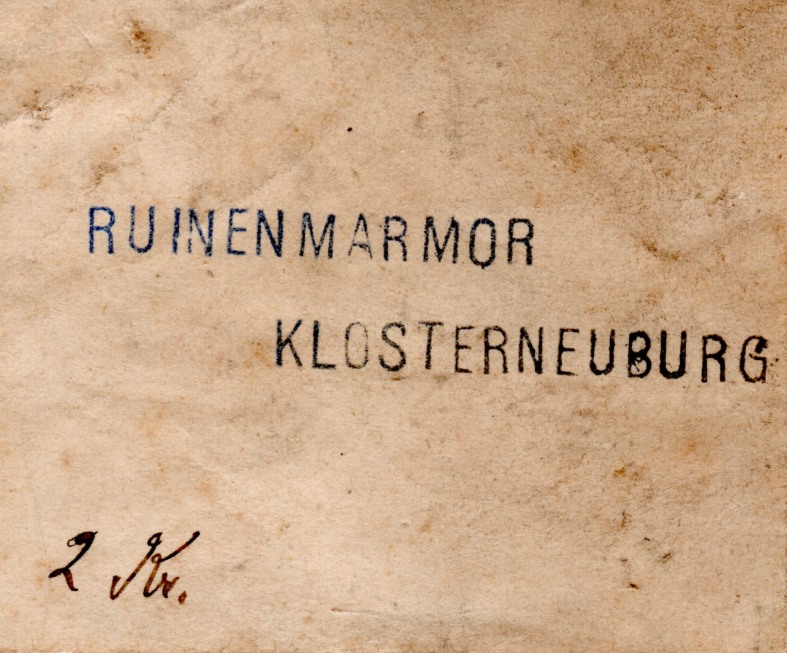 RUINENMARMOR
KLOSTERNEUBURG
2 Kr.